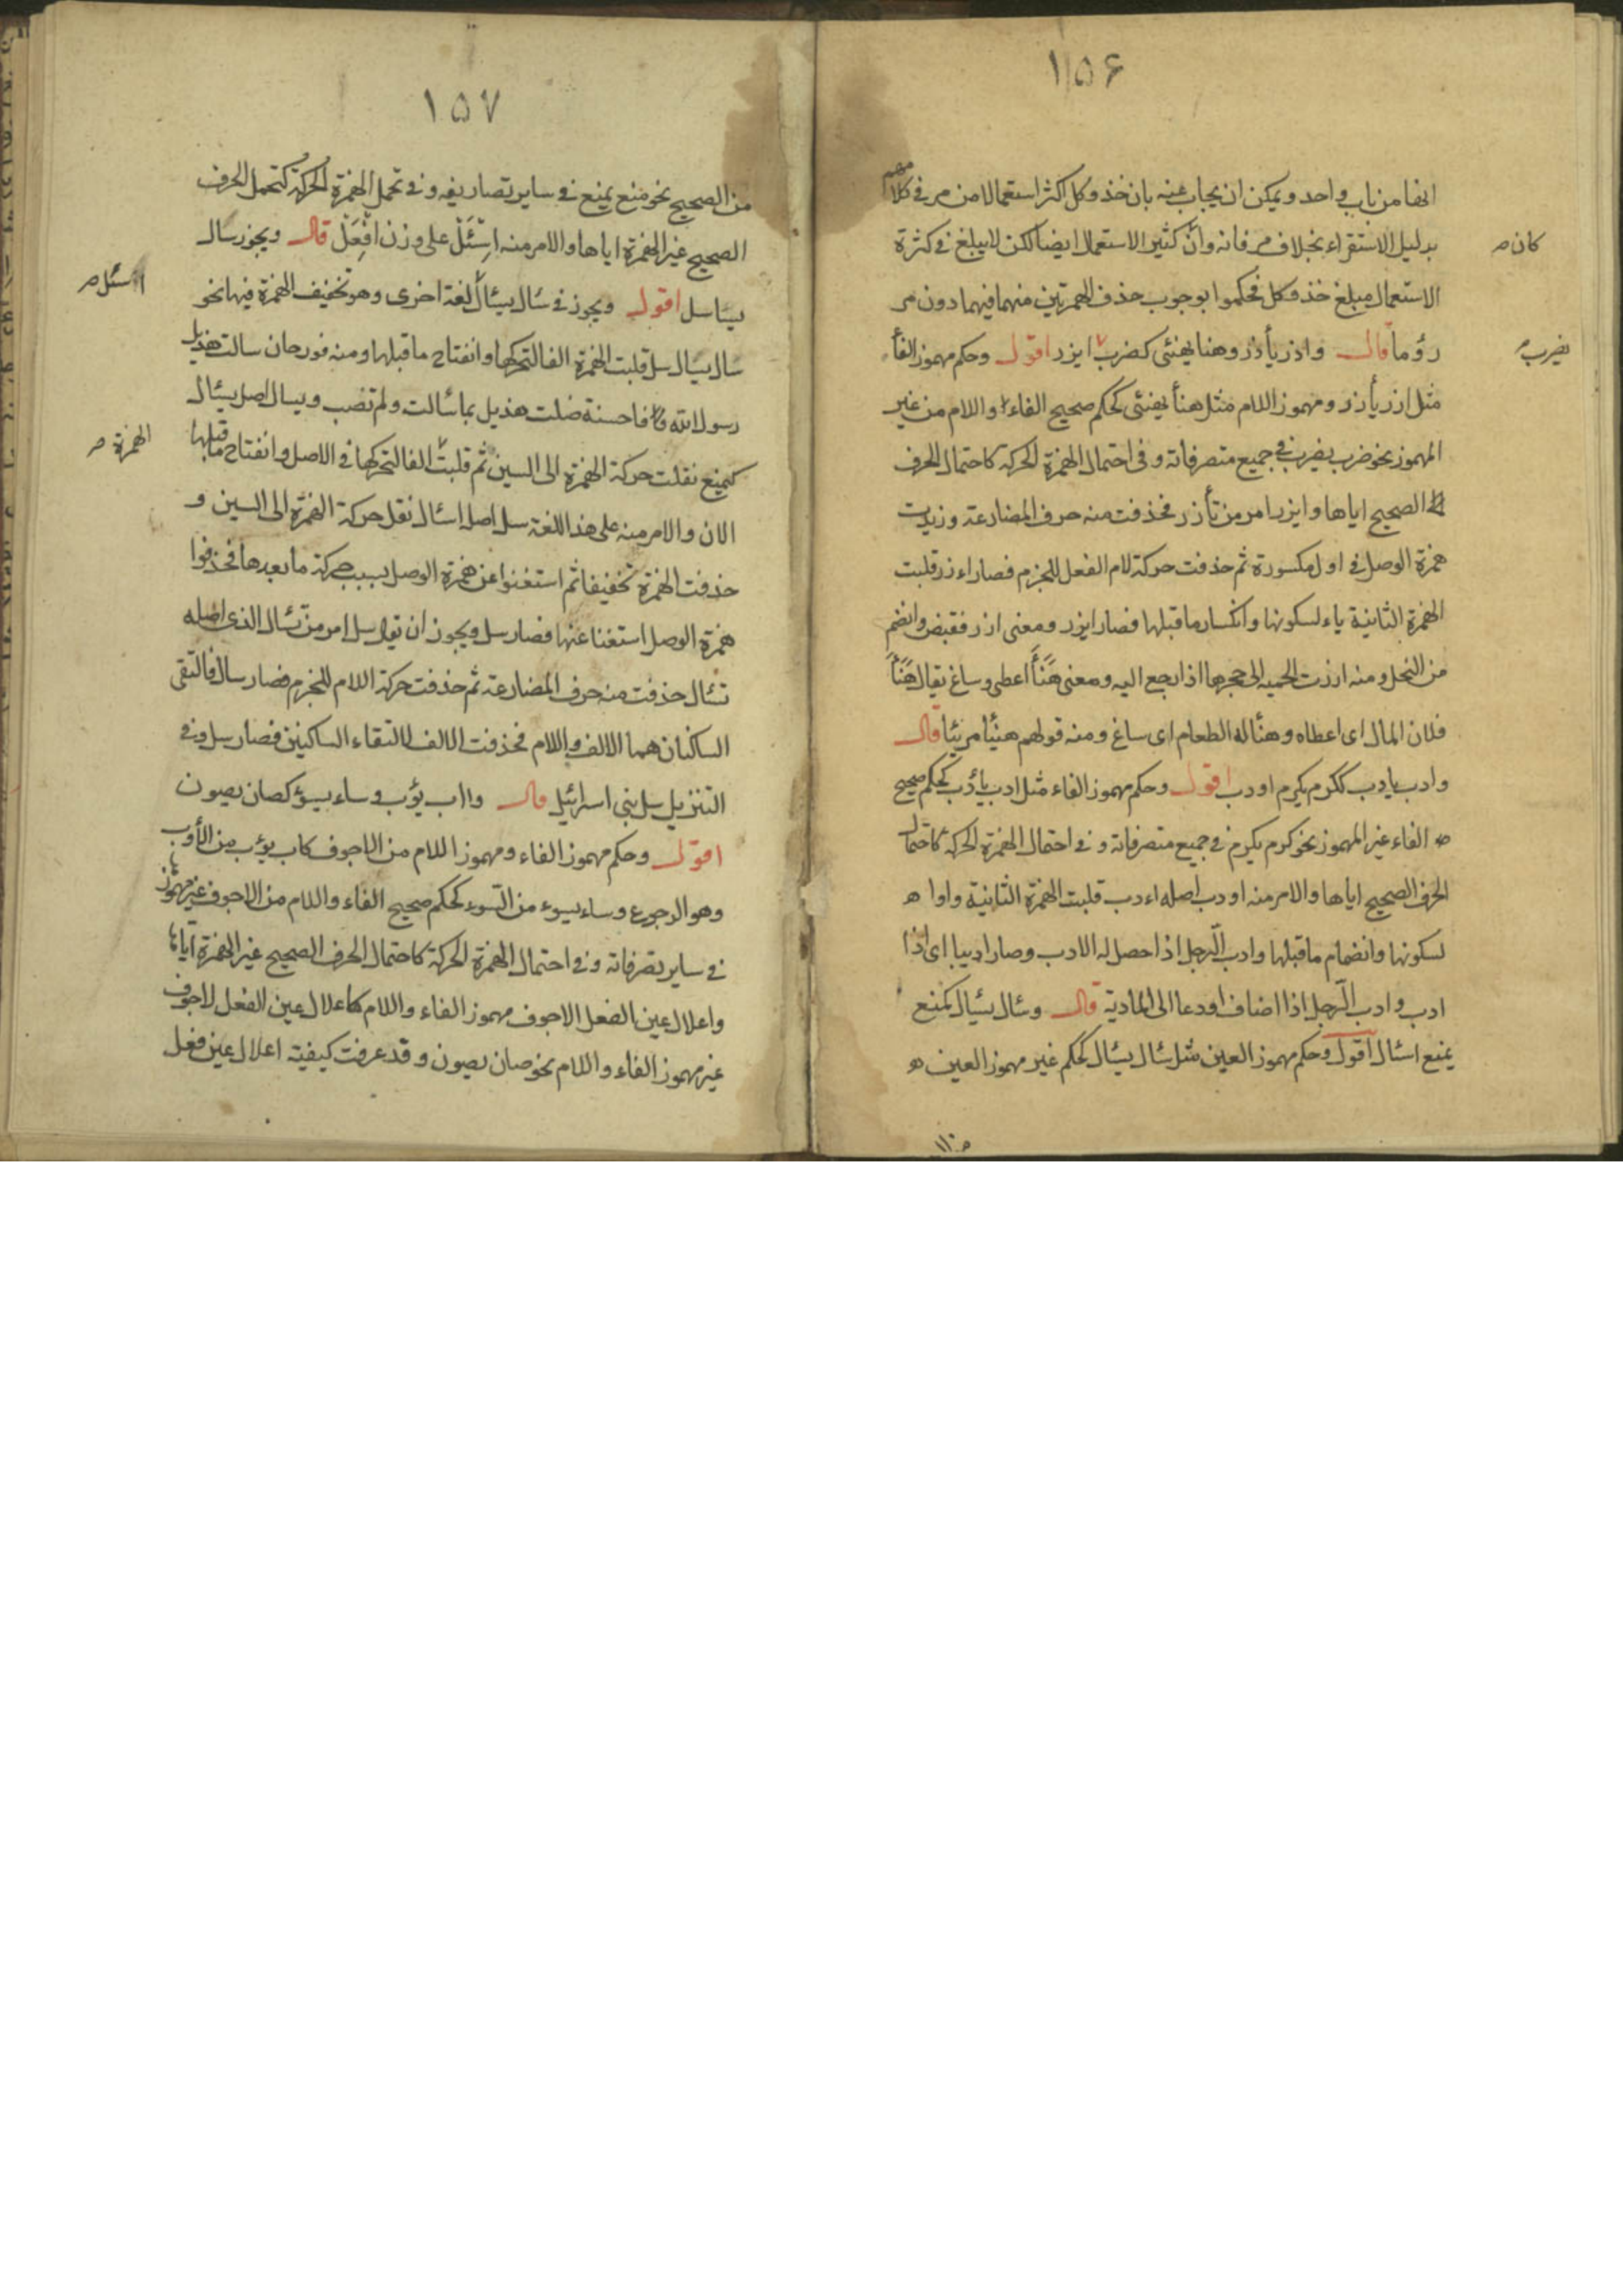 ١٥۶
انفا من باب واحد ويمكن ان يجاب عنه بان خذ وكل اكثر استعمالا من مر فى كلا مهم
بدليل الاستقراء بخلاف مر فانه وان كثير الاستعمال ايضا لكن لا يبلغ فى كثرة
كان
الاستعمال مبلغ خذ وكل فحكموا بوجوب حذف الهمزتين منهما فيهما دون مر
رؤما قال وازر يأزر وهنا يهنئى كضرب ايزر اقول وحكم مهموز الفأ
يضرب
مثل ازر يأزر ومهموز اللام مثل هنأ يهنئى كحكم صحيح الفاء واللام من غير
المهموز نحو ضرب يضرب فى جميع متصرفاته وفى احتمال الهمزة الحركة كاحتمال الحرف
الصحيح اياها وايزر امر من تأزر فحذفت منه حرف المضارعة وزيدت
همزة الوصل فى اول مكسورة ثم حذفت حركة لام الفعل للجزم فصار اءزر قلبت
الهمزة الثانية ياء لسكونها وانكسار ما قبلها فصار ايزر ومعنى ازر فقبض وانضم
من النحل ومنه ارزت الحميه الى حجرها اذا رجع اليه ومعنى هَنَأَ اعطى وساغ يقال هَنَأَ
فلان المال اى اعطاه وهنأ له الطعام اى ساغ ومنه قولهم هنيئا مريئا قال
وادب يادب ككرم يكرم اودب اقول وحكم مهموز الفاء مثل ادب يأدب كحكم صحيح
الفاء غير المهموز نحو كرم يكرم فى جميع متصرفاته وفى احتمال الهمزة الحركة كاحتمال
الحرف الصحيح اياها والامر منه اودب اصله اءدب قلبت الهمزة الثانية واوا
لسكونها وانضمام ما قبلها وادب الرجل اذا حصل له الادب وصار اديبا اى اذا
ادب وادب الرجل اذا اضاف اودعا الى المادبة قال وسئال يسئال كمنع
يمنع اسئال اقول وحكم مهموز العين مثل سئال يسئال كحكم غير مهموز العين
١٥٧
من الصحيح نحو منع يمنع فى ساير تصاريفه وفى تحمل الهمزة الحركة كتحمل الحرف
الصحيح غير الهمزة اياها والامر منه اِسْئَلْ على وزن اِفْعَلْ قال ويجوز سال
يسا سل اقول ويجوز فى سئال يسئال لغة اخرى وهو تخفيف الهمزة فيها نحو
اسئل
سال يسال سل قلبت الهمزة الفا لتحركها وانفتاح ما قبلها ومنه قور حان سالت هذيل
رسول الله فاحسنة ضلت هذيل بما سئالت ولم تصب ويسال اصل يسئال
كيمنع نقلت حركة الهمزة الى السين ثم قلبت الفا لتحركها فى الاصل وانفتاح ما قبلها
الهمزة
الان والامر منه على هذا اللغة سل اصله اسئال نقل حركة الهمزة الى السين و
حذفت الهمزة تخفيفا ثم استغنوا عن همزة الوصل بسبب حركة ما بعدها فحذفوا
همزة الوصل استغنا عنها فصار سل ويجوز ان تقول سل امر من تسئال الذى اصله
تسئال حذفت منه حرف المضارعة ثم حذفت حركة اللام للجزم فصار سال فالتقى
الساكنان هما الالف واللام فحذفت الالف لالتقاء الساكنين فصار سل وفى
التنزيل سل بنى اسرائيل قال واب يؤب وساء يسوء كصان يصون
اقول وحكم مهموز الفاء ومهموز اللام من الاجوف كاب يؤب من الأوب
وهو الرجوع وساء يسوء من السوء كحكم صحيح الفاء واللام من الاجوف غير مهموز
فى ساير تصرفاته وفى احتمال الهمزة الحركة كاحتمال الحرف الصحيح غير الهمزة اياها
واعلال عين الفعل الاجوف مهموز الفاء واللام كاعلال عين الفعل لاجوف
غير مهموز الفاء واللام نحو صان يصون وقد عرفت كيفية اعلال عين فعل